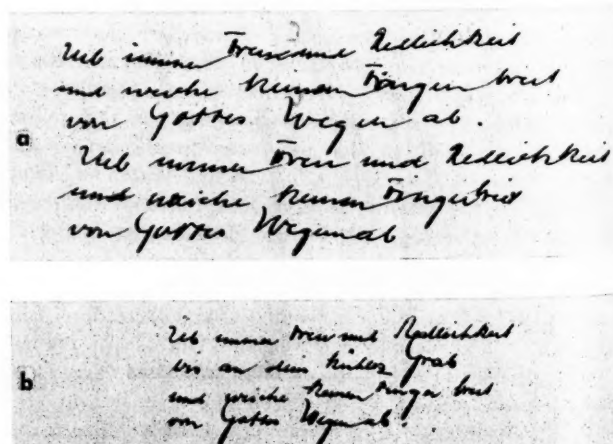 a
Üb immer Treu und Redlichkeit
und weiche keinen Finger breit
von Gottes Wegen ab.
Üb immer Treu und Redlichkeit
und weiche keinen Fingerbreit
von Gottes Wegen ab
b
Üb immer Treu und Redlichkeit
bis an dein kühles Grab
und weiche keinen Finger breit
von Gottes Wegen ab.